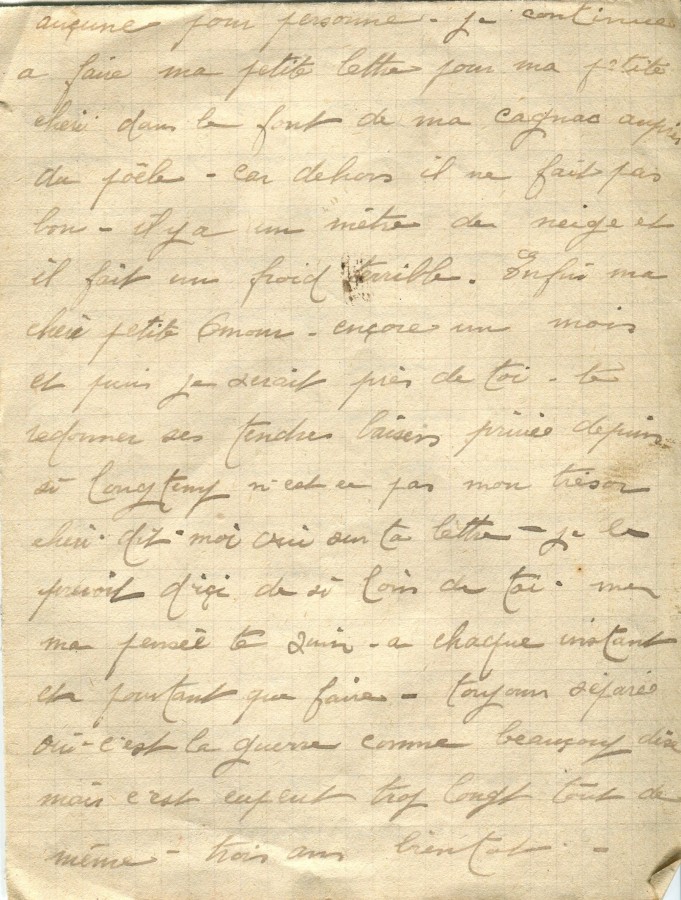 aucune pour personne - je continue
a faire ma petite lettre pour ma petite
cheri dans le font de ma cagnac auprès
du poêle - car dehors il ne fait pas
bon - il y a un mètre de neige et
il fait un froid terrible. Enfin ma
cheri petite Amour - encore un mois
et puis je serait près de toi - te
redonner ses tendres baisers privée depuis
si longtemp n'est ce pas mon trésor
cheri - dit - moi oui sur ta lettre - je le
prevoit d'içi de si loin de toi -
ma pensée te suin - a chaque instant
et pourtant que faire - toujours séparée
oui - c'est la guerre comme beaucoup dise
mais c'est un peut trop longt tout de
même - trois ans bientot - -